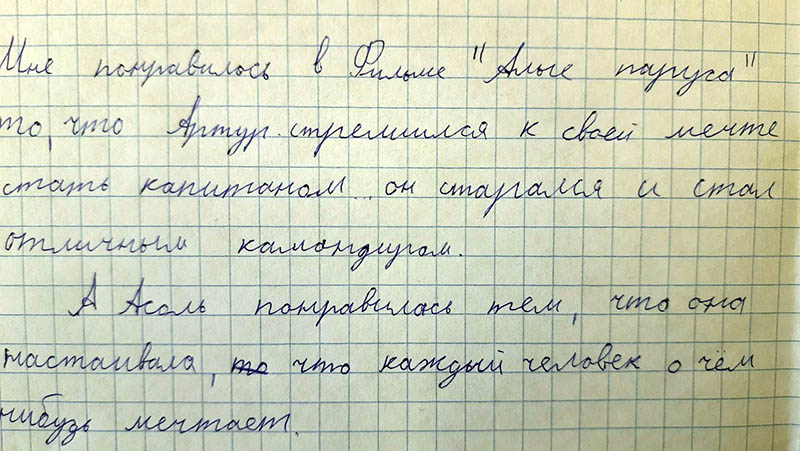 Мне понравилось в Фильме "Алые паруса"
то, что Артур стремился к своей мечте
стать капитаном. он старался и стал
отличным камандиром.
А Асоль понравилась тем, что она
настаивала, что каждый человек о чём
нибудь мечтает.